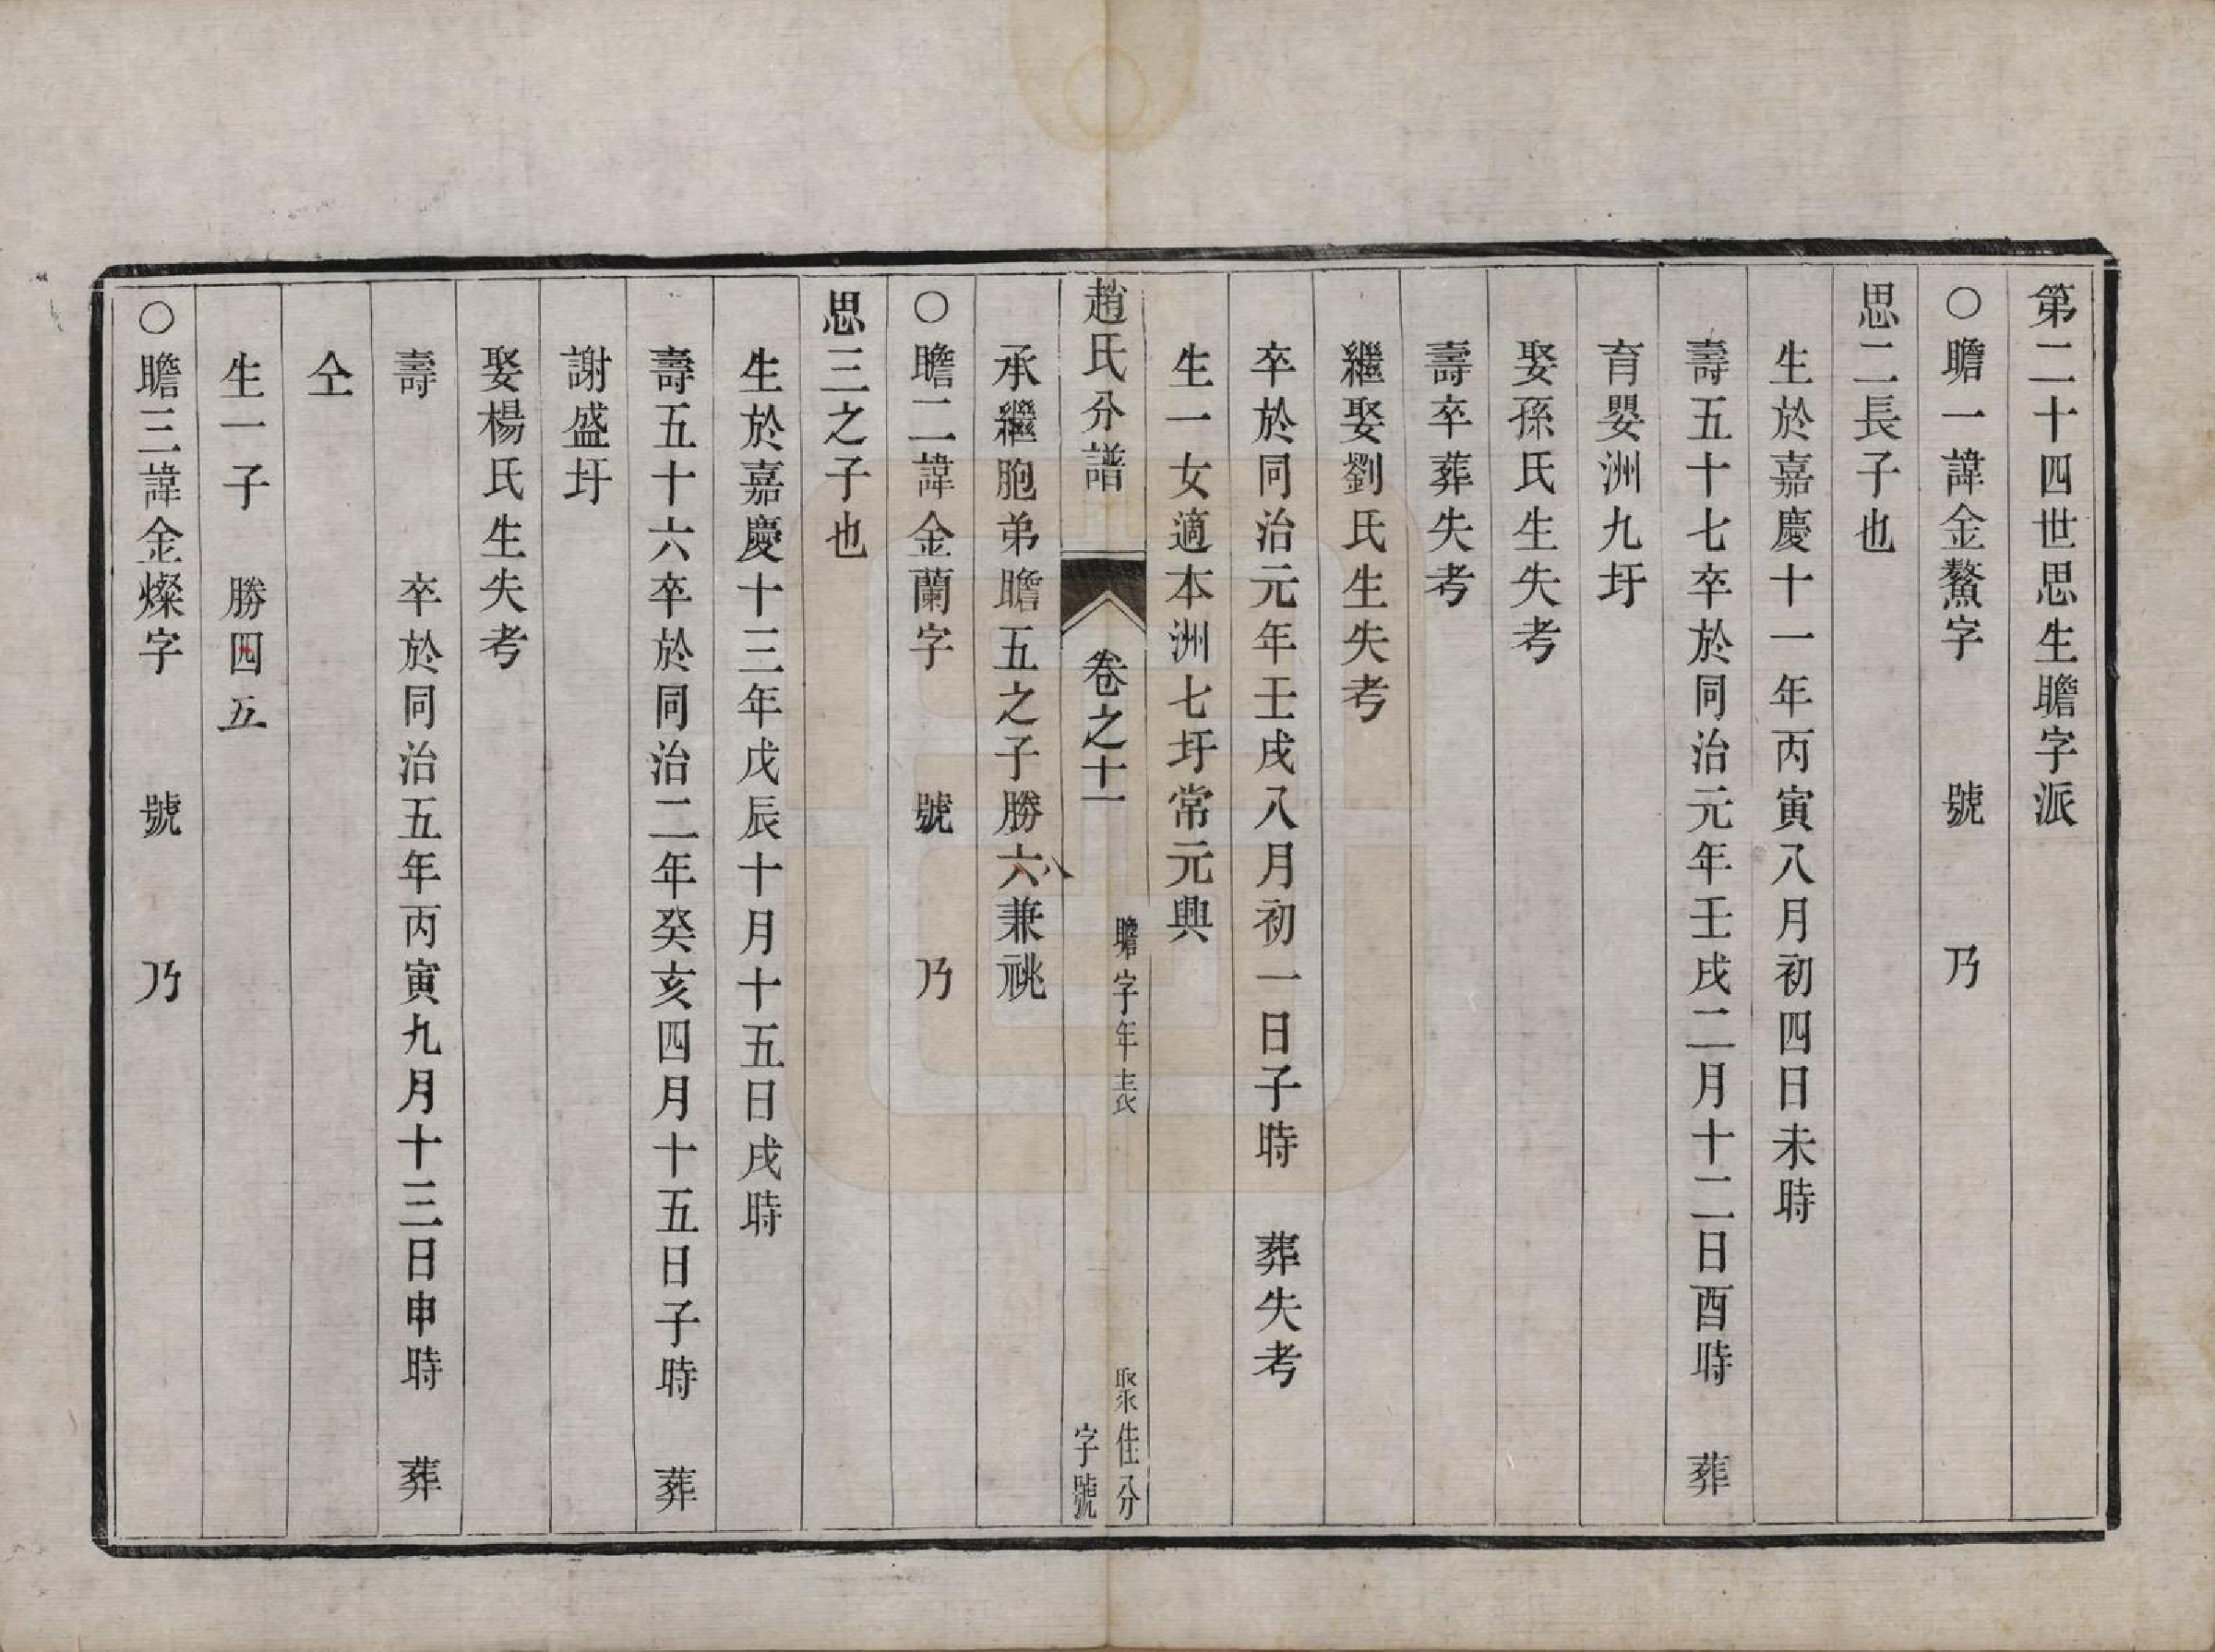 第二十四世思生瞻字派
○瞻一諱金鰲字　號　乃
思二長子也
生於嘉慶十一年丙寅八月初四日未時
壽五十七卒於同治元年壬戌二月十二日酉時　葬
育嬰洲九圩
娶孫氏生失考
壽卒葬失考
繼娶劉氏生失考
卒於同治元年壬戌八月初一日子時　葬失考
生一女適本洲七圩常元興
趙氏分譜　卷之十一　瞻字年表　聚佳分
字號
承繼胞弟瞻五之子勝六八兼祧
○瞻二諱金蘭字　號　乃
思三之子也
生於嘉慶十三年戊辰十月十五日戌時
壽五十六卒於同治二年癸亥四月十五日子時　葬
謝盛圩
娶楊氏生失考
壽　卒於同治五年丙寅九月十三日申時　葬
仝
生一子　勝四五
○瞻三諱金燦字　號　乃